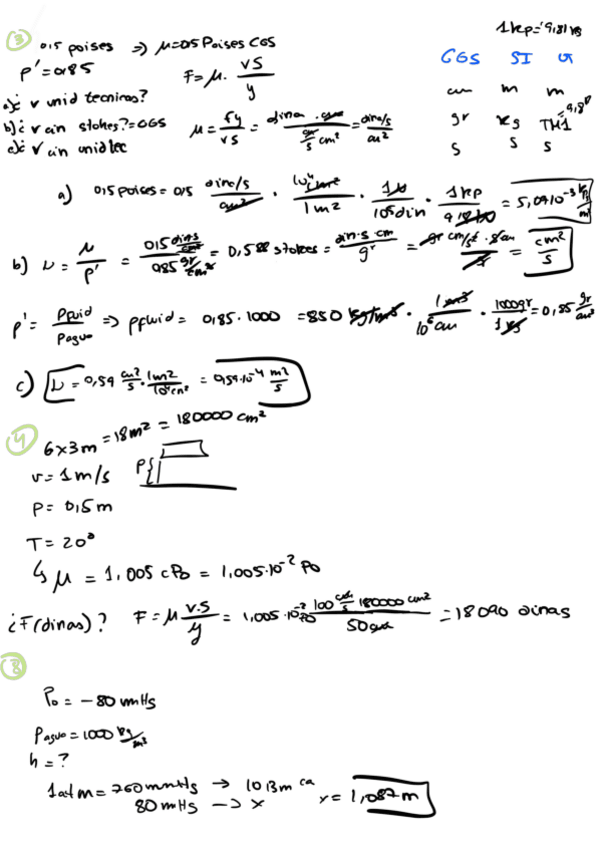 ③ 0,5 poises => μ=0,5 Poises CGS
1kp = 9,81 N
ρ' = 0,85
F = μ · vS / y
CGS SI UT
cm m m
gr kg TM1 9,8
S S S
a) ¿ν unid tecnicas?
b) ¿ν en stokes? = CGS
c) ¿ν en unid tec
μ = Fy / vS = dina · cm / cm/s cm² = dina/s / cm²
a) 0,5 poises = 0,5 dina/s / cm² · 10⁴ cm² / 1m² · 1N / 10⁵ din · 1kp / 9,81N = 5,09·10⁻³ kp / m²
b) ν = μ / ρ' = 0,5 / 0,85 gr/cm³ = 0,588 stokes = din·s cm / gr = gr cm/s² · s cm = cm² / s
ρ' = ρfluid / ρagua => ρfluid = 0,85 · 1000 = 850 kg/m³ · 1m³ / 10⁶ cm · 1000gr / 1kg = 0,85 gr / cm³
c) ν = 0,59 cm²/s · 1m² / 10⁴cm² = 0,59·10⁻⁴ m² / s
④ 6x3m = 18m² = 180000 cm²
v = 1 m/s
P{
P = 0,5 m
T = 20°
↳ μ = 1,005 cPo = 1,005·10⁻² Po
¿F(dinas)? F = μ v·S / y = 1,005·10⁻² Po 100 cm/s 180000 cm² / 50 cm = 18090 dinas
⑧
Po = -80 mmHg
ρagua = 1000 kg/m³
h = ?
1atm = 760mmHg → 10,13m ca
80 mmHg → x x = 1,087 m